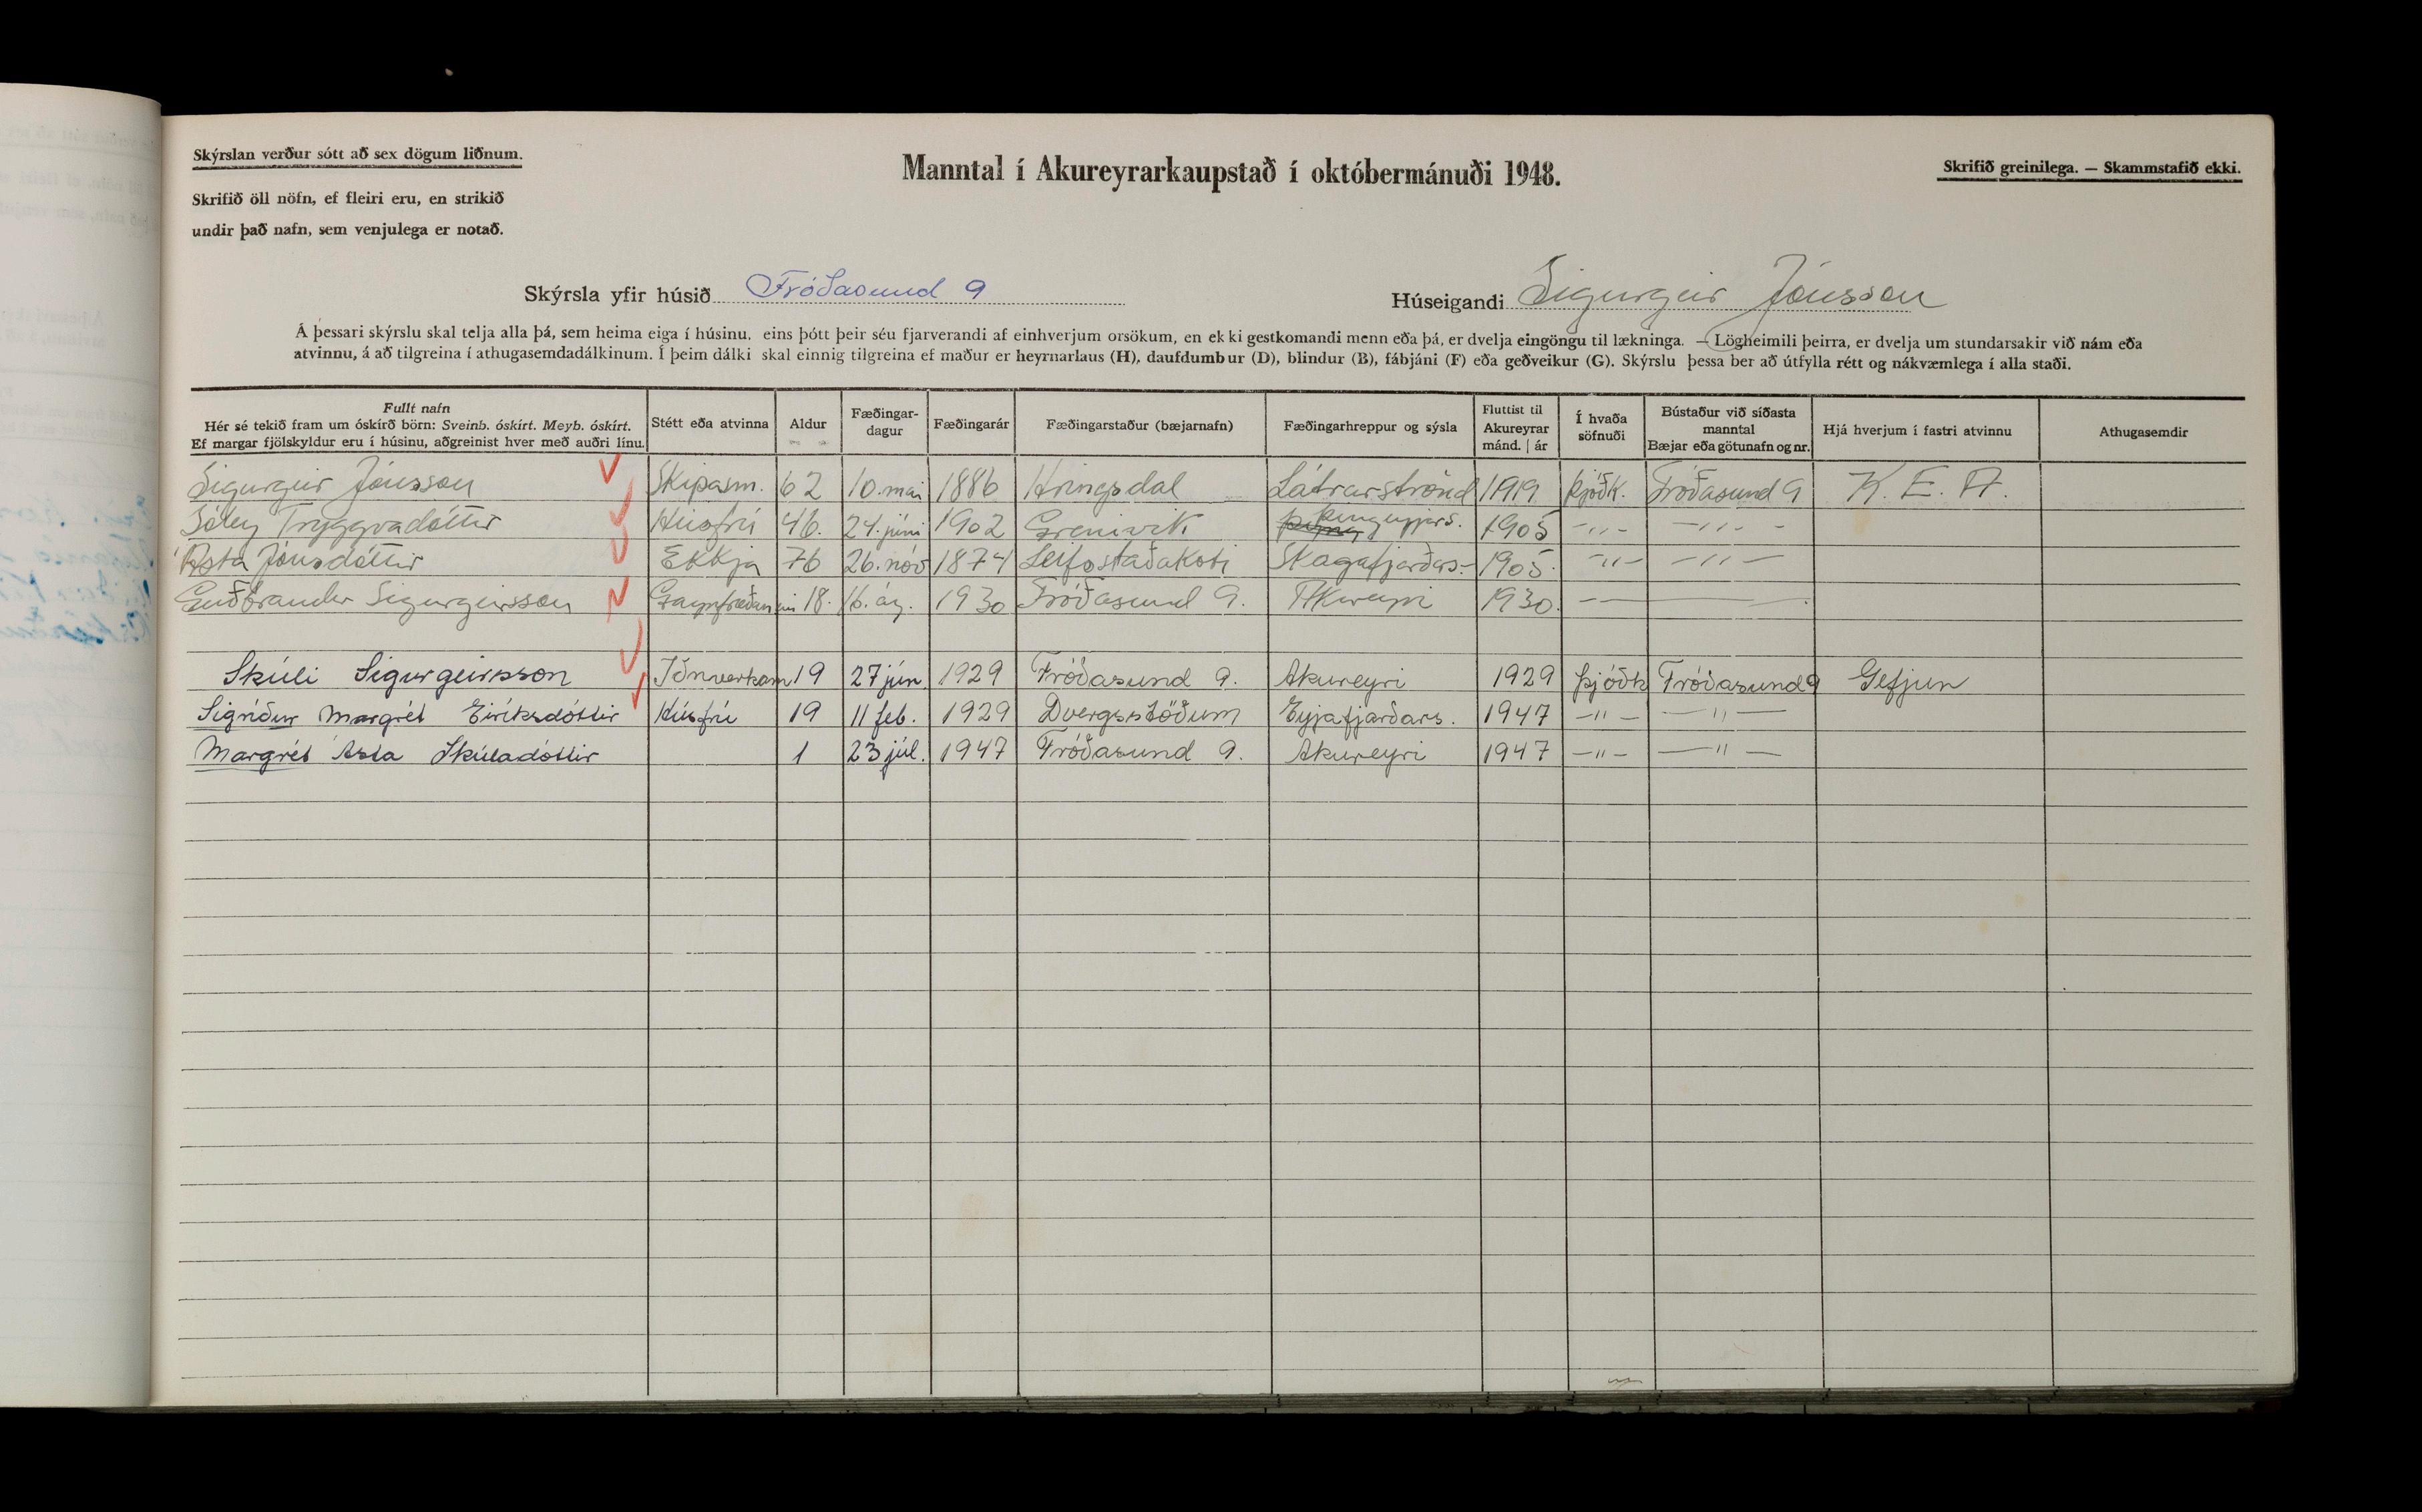 Skýrslan verður sótt að sex dögum liðnum.
Skrifið öll nöfn, ef fleiri eru, en strikið
undir það nafn, sem venjulega er notað.
Manntal í Akureyrarkaupstað í októbermánuði 1948.
Skrifið greinilega. — Skammstafið ekki.
Skýrsla yfir húsið Fróðasund 9
Húseigandi Sigurgeir Jónsson
Á þessari skýrslu skal telja alla þá, sem heima eiga í húsinu, eins þótt þeir séu fjarverandi af einhverjum orsökum, en ekki gestkomandi menn eða þá, er dvelja eingöngu til lækninga. — Lögheimili þeirra, er dvelja um stundarsakir við nám eða
atvinnu, á að tilgreina í athugasemdadálkinum. Í þeim dálki skal einnig tilgreina ef maður er heyrnarlaus (H), daufdumbur (D), blindur (B), fábjáni (F) eða geðveikur (G). Skýrslu þessa ber að útfylla rétt og nákvæmlega í alla staði.
Fullt nafn
Hér sé tekið fram um óskírð börn: Sveinb. óskírt. Meyb. óskírt.
Ef margar fjölskyldur eru í húsinu, aðgreinist hver með auðri línu.
Stétt eða atvinna
Aldur
Fæðingar-
dagur
Fæðingarár
Fæðingarstaður (bæjarnafn)
Fæðingarhreppur og sýsla
Fluttist til
Akureyrar
mánd. | ár
Í hvaða
söfnuði
Bústaður við síðasta
manntal
Bæjar eða götunafn og nr.
Hjá hverjum í fastri atvinnu
Athugasemdir
Sigurgeir Jónsson Skipasm. 62 10. mai 1886 Hringsdal Látrarströnd 1919 Þjóðk. Fróðasund 9 K. E. A.
Sóley Tryggvadóttir Húsfrú 46. 24. júni 1902 Grenivík Þingeyjars. 1905 -"- -"-
Ásta Jónsdóttir Ekkja 76 26. nóv 1874 Leifsstaðakoti Skagafjarðars- 1905. -"- -"-
Guðbrandur Sigurgeirsson 18. 16. ág. 1930 Fróðasund 9. Akureyri 1930. — —
Skúli Sigurgeirsson Iðnverkam 19 27 jún. 1929 Fróðasund 9. Akureyri 1929 Þjóðk Fróðasund 9 Gefjun
Sigríður Margrét Eiríksdóttir Húsfrú 19 11 feb. 1929 Dvergsstöðum Eyjafjarðars. 1947 -"- -"-
Margrét Ásta Skúladóttir 1 23 júl. 1947 Fróðasund 9. Akureyri 1947 -"- -"-